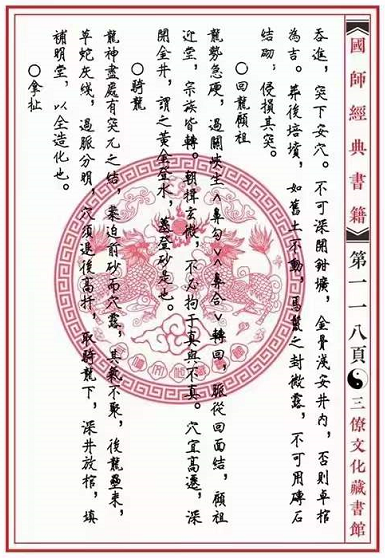 國師經典書籍
第一一八頁
三僚文化藏書館
吞進，突下安穴。不可深開鉗壙，金骨淺安井內，否則卓棺
為吉。葬後培墳，如舊土不動，馬鬣之封微露，不可用磚石
結砌，侵損其突。
〇回龍顧祖
龍勢急硬，過關峽生<鼻勾><鼻合>轉回，脈從回面結，顧祖
迎堂，宗族皆轉。朝揖玄微，不必拘于真與不真。穴宜高遷，深
開金井，謂之黃金登水，蓋登砂是也。
〇騎龍
龍神盡處有突兀之結，案迫前砂而穴露，其氣不聚，後龍壘來，
草蛇灰綫，過脈分明，穴須退後高扦，取騎龍下，深井放棺，填
補明堂，以全造化也。
〇拿扯